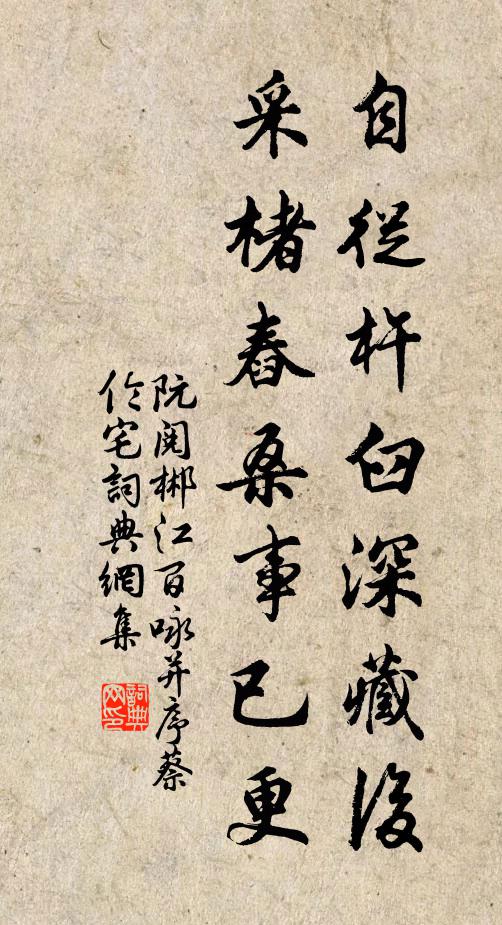 自從杵臼深藏後
采楮舂桑事已更
阮閱郴江百咏并序蔡
伦宅詞典網集
詞典网印